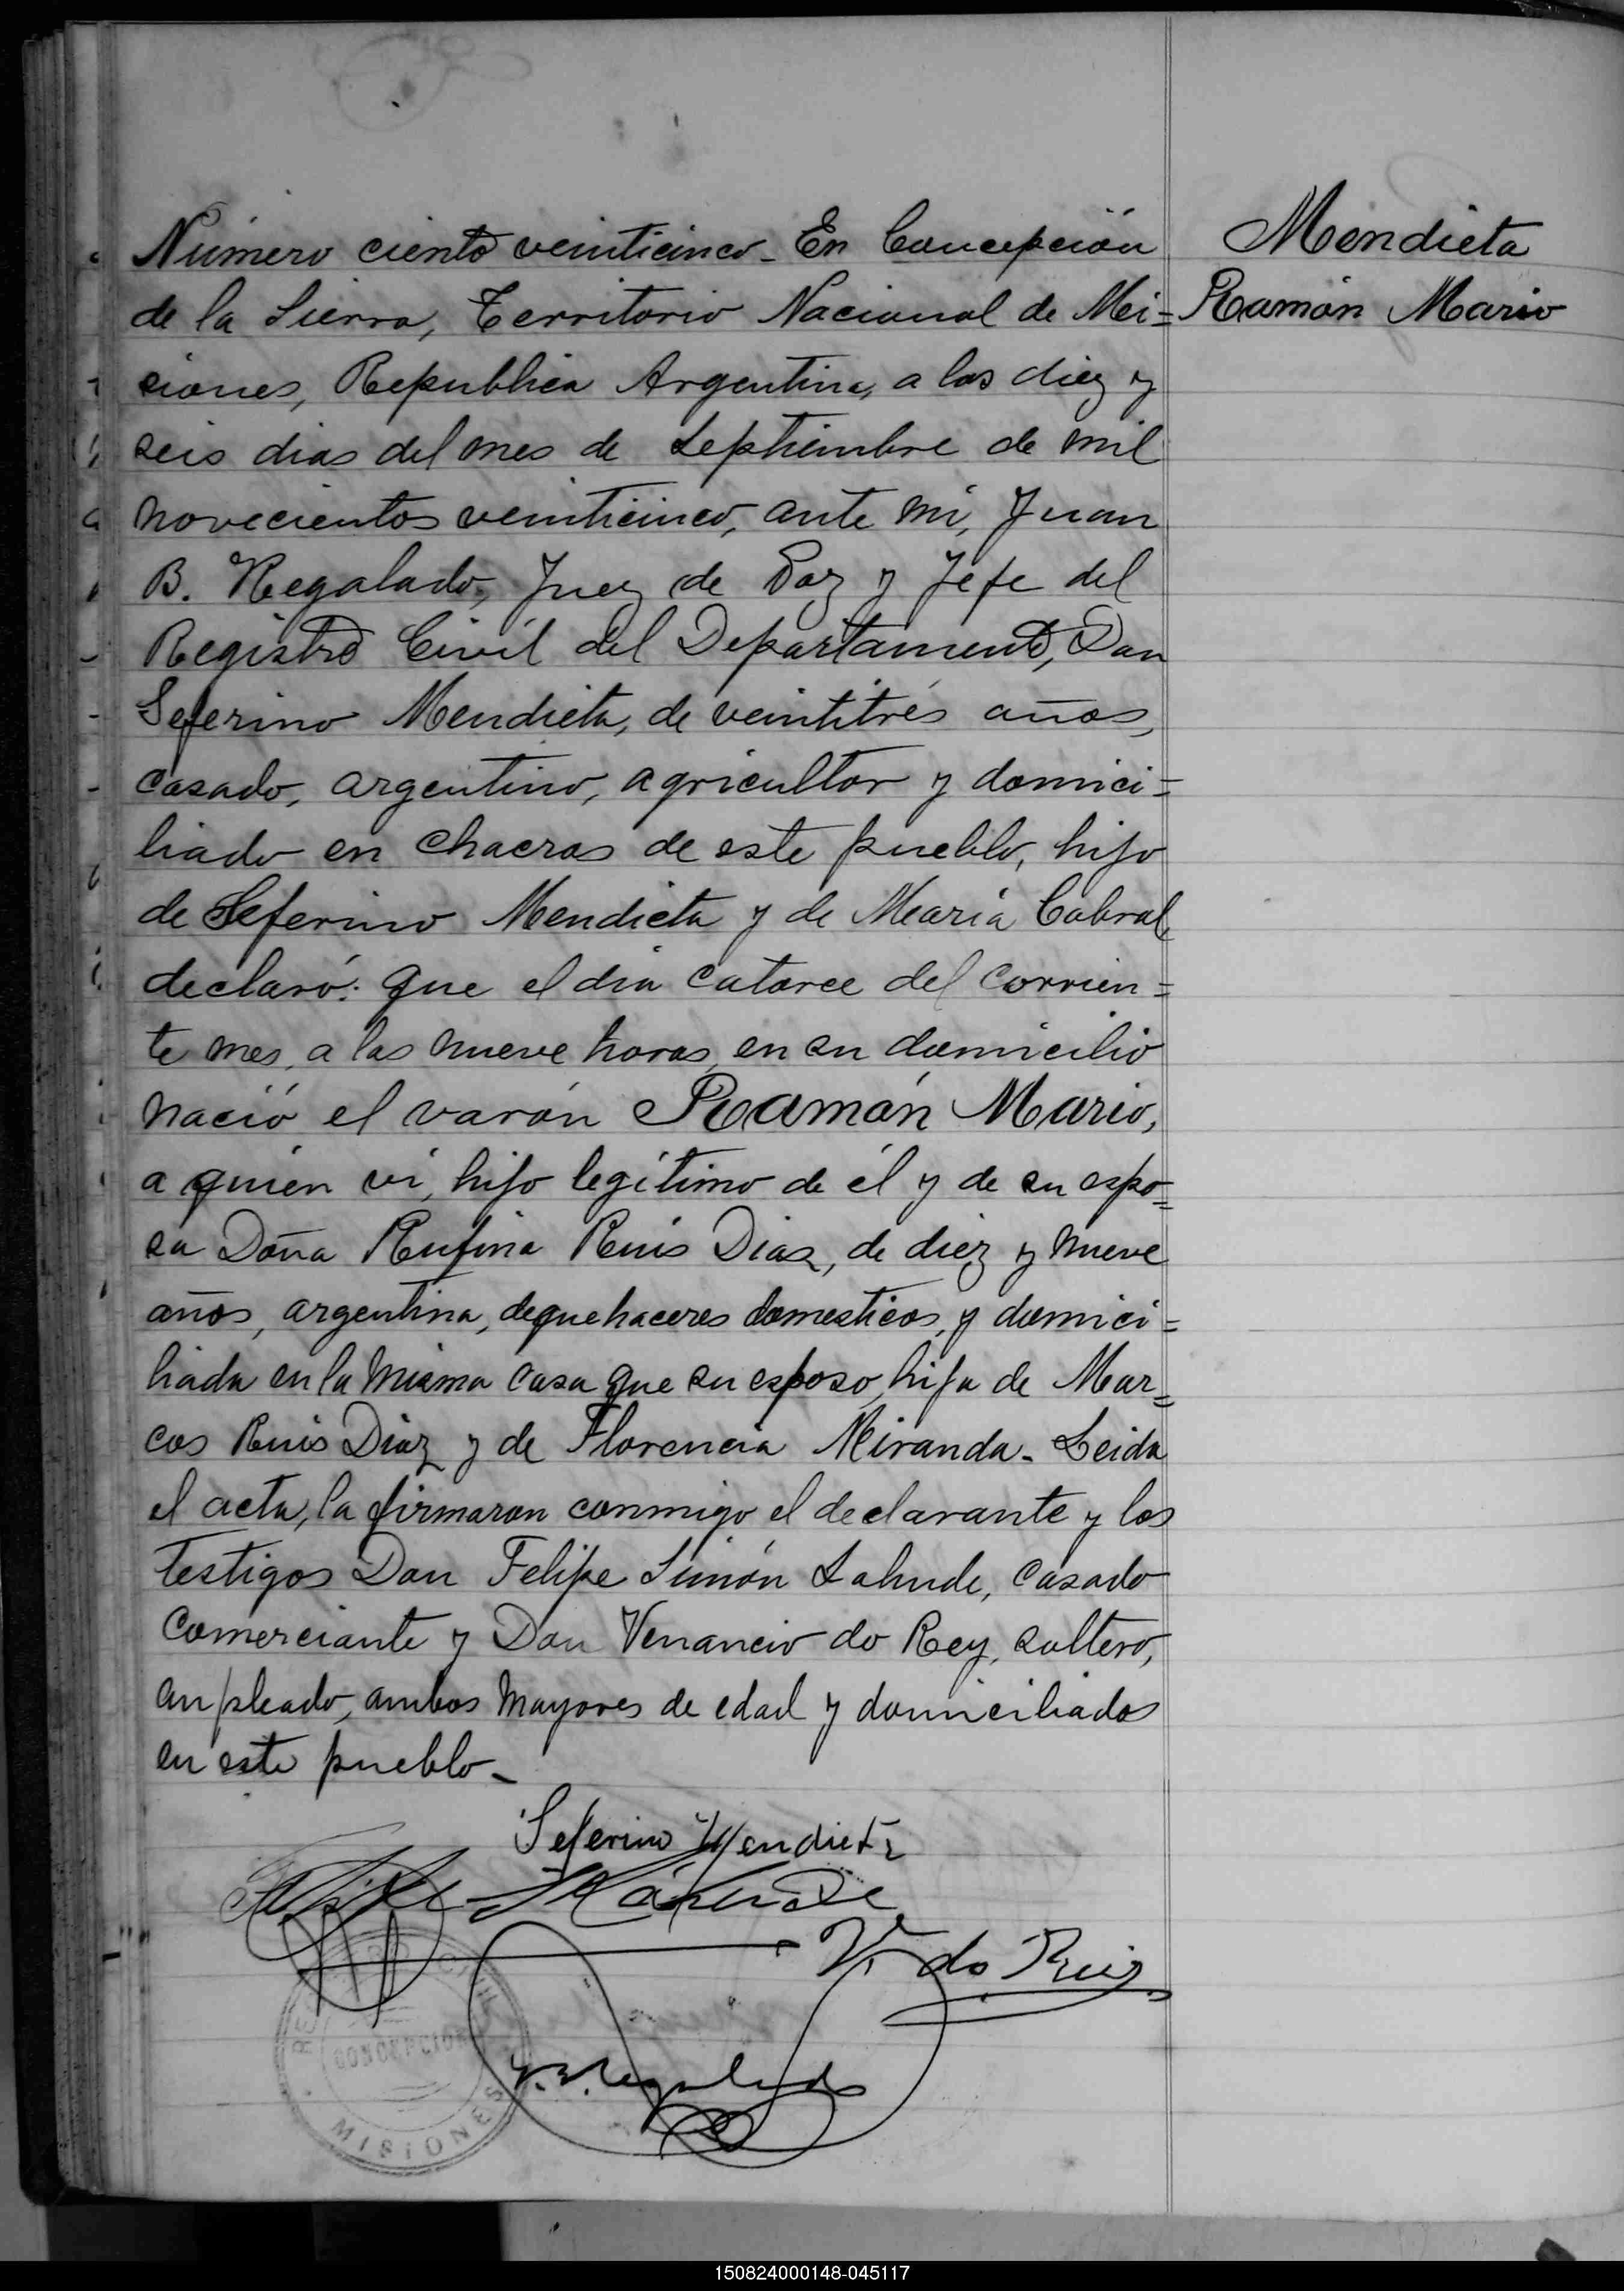 Número ciento veinticinco - En Concepción
de la Sierra, Territorio Nacional de Mi=
siones, Republica Argentina, a los diez y
seis dias del mes de Septiembre de mil
novecientos veinticinco, ante mi, Juan
B. Regalado, Juez de Paz y Jefe del
Registro Civil del Departamento, Don
Seferino Mendieta, de veintitrés años,
casado, argentino, agricultor y domici=
liado en chacras de este pueblo, hijo
de Seferino Mendieta y de María Cabral,
declaró: que el dia catorce del corrien=
te mes, a las nueve horas, en su domicilio
nació el varón Ramón Mario,
a quien vi, hijo legítimo de él y de su espo=
sa Doña Rufina Ruis Dias, de diez y nueve
años, argentina, de quehaceres domesticos, y domici=
liada en la misma casa que su esposo, hija de Mar=
cos Ruis Diaz y de Florencia Miranda - Leida
el acta, la firmaron conmigo el declarante y los
testigos Don Felipe Simón Lahude, casado
comerciante y Don Venancio do Rey, soltero,
empleado, ambos mayores de edad y domiciliados
en este pueblo -
Mendieta
Ramón Mario
Seferino Mendieta
V. do Rey
J. B. Regalado
REGISTRO CIVIL
CONCEPCION
MISIONES
150824000148-045117